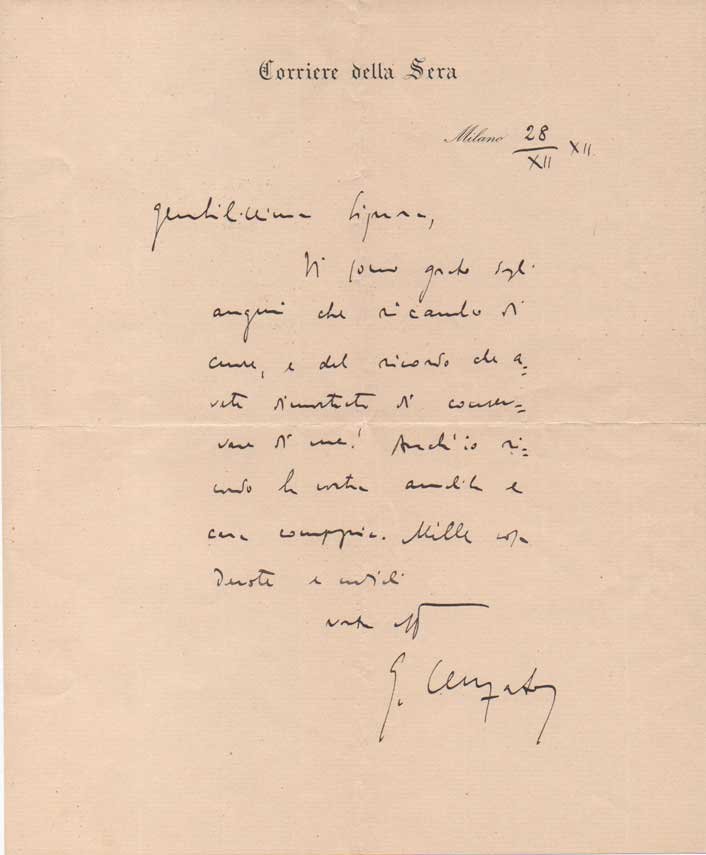 Corriere della Sera
Milano 28/XII XII
gentilissima Signora,
Vi sono grato degli
auguri che ricambio di
cuore, e del ricordo che a=
vete dimostrato di conser=
vare di me! Anch'io ri=
cordo la vostra amabile e
cara compagnia. Mille cose
devote e cordiali
vostro aff
G. Cenzato